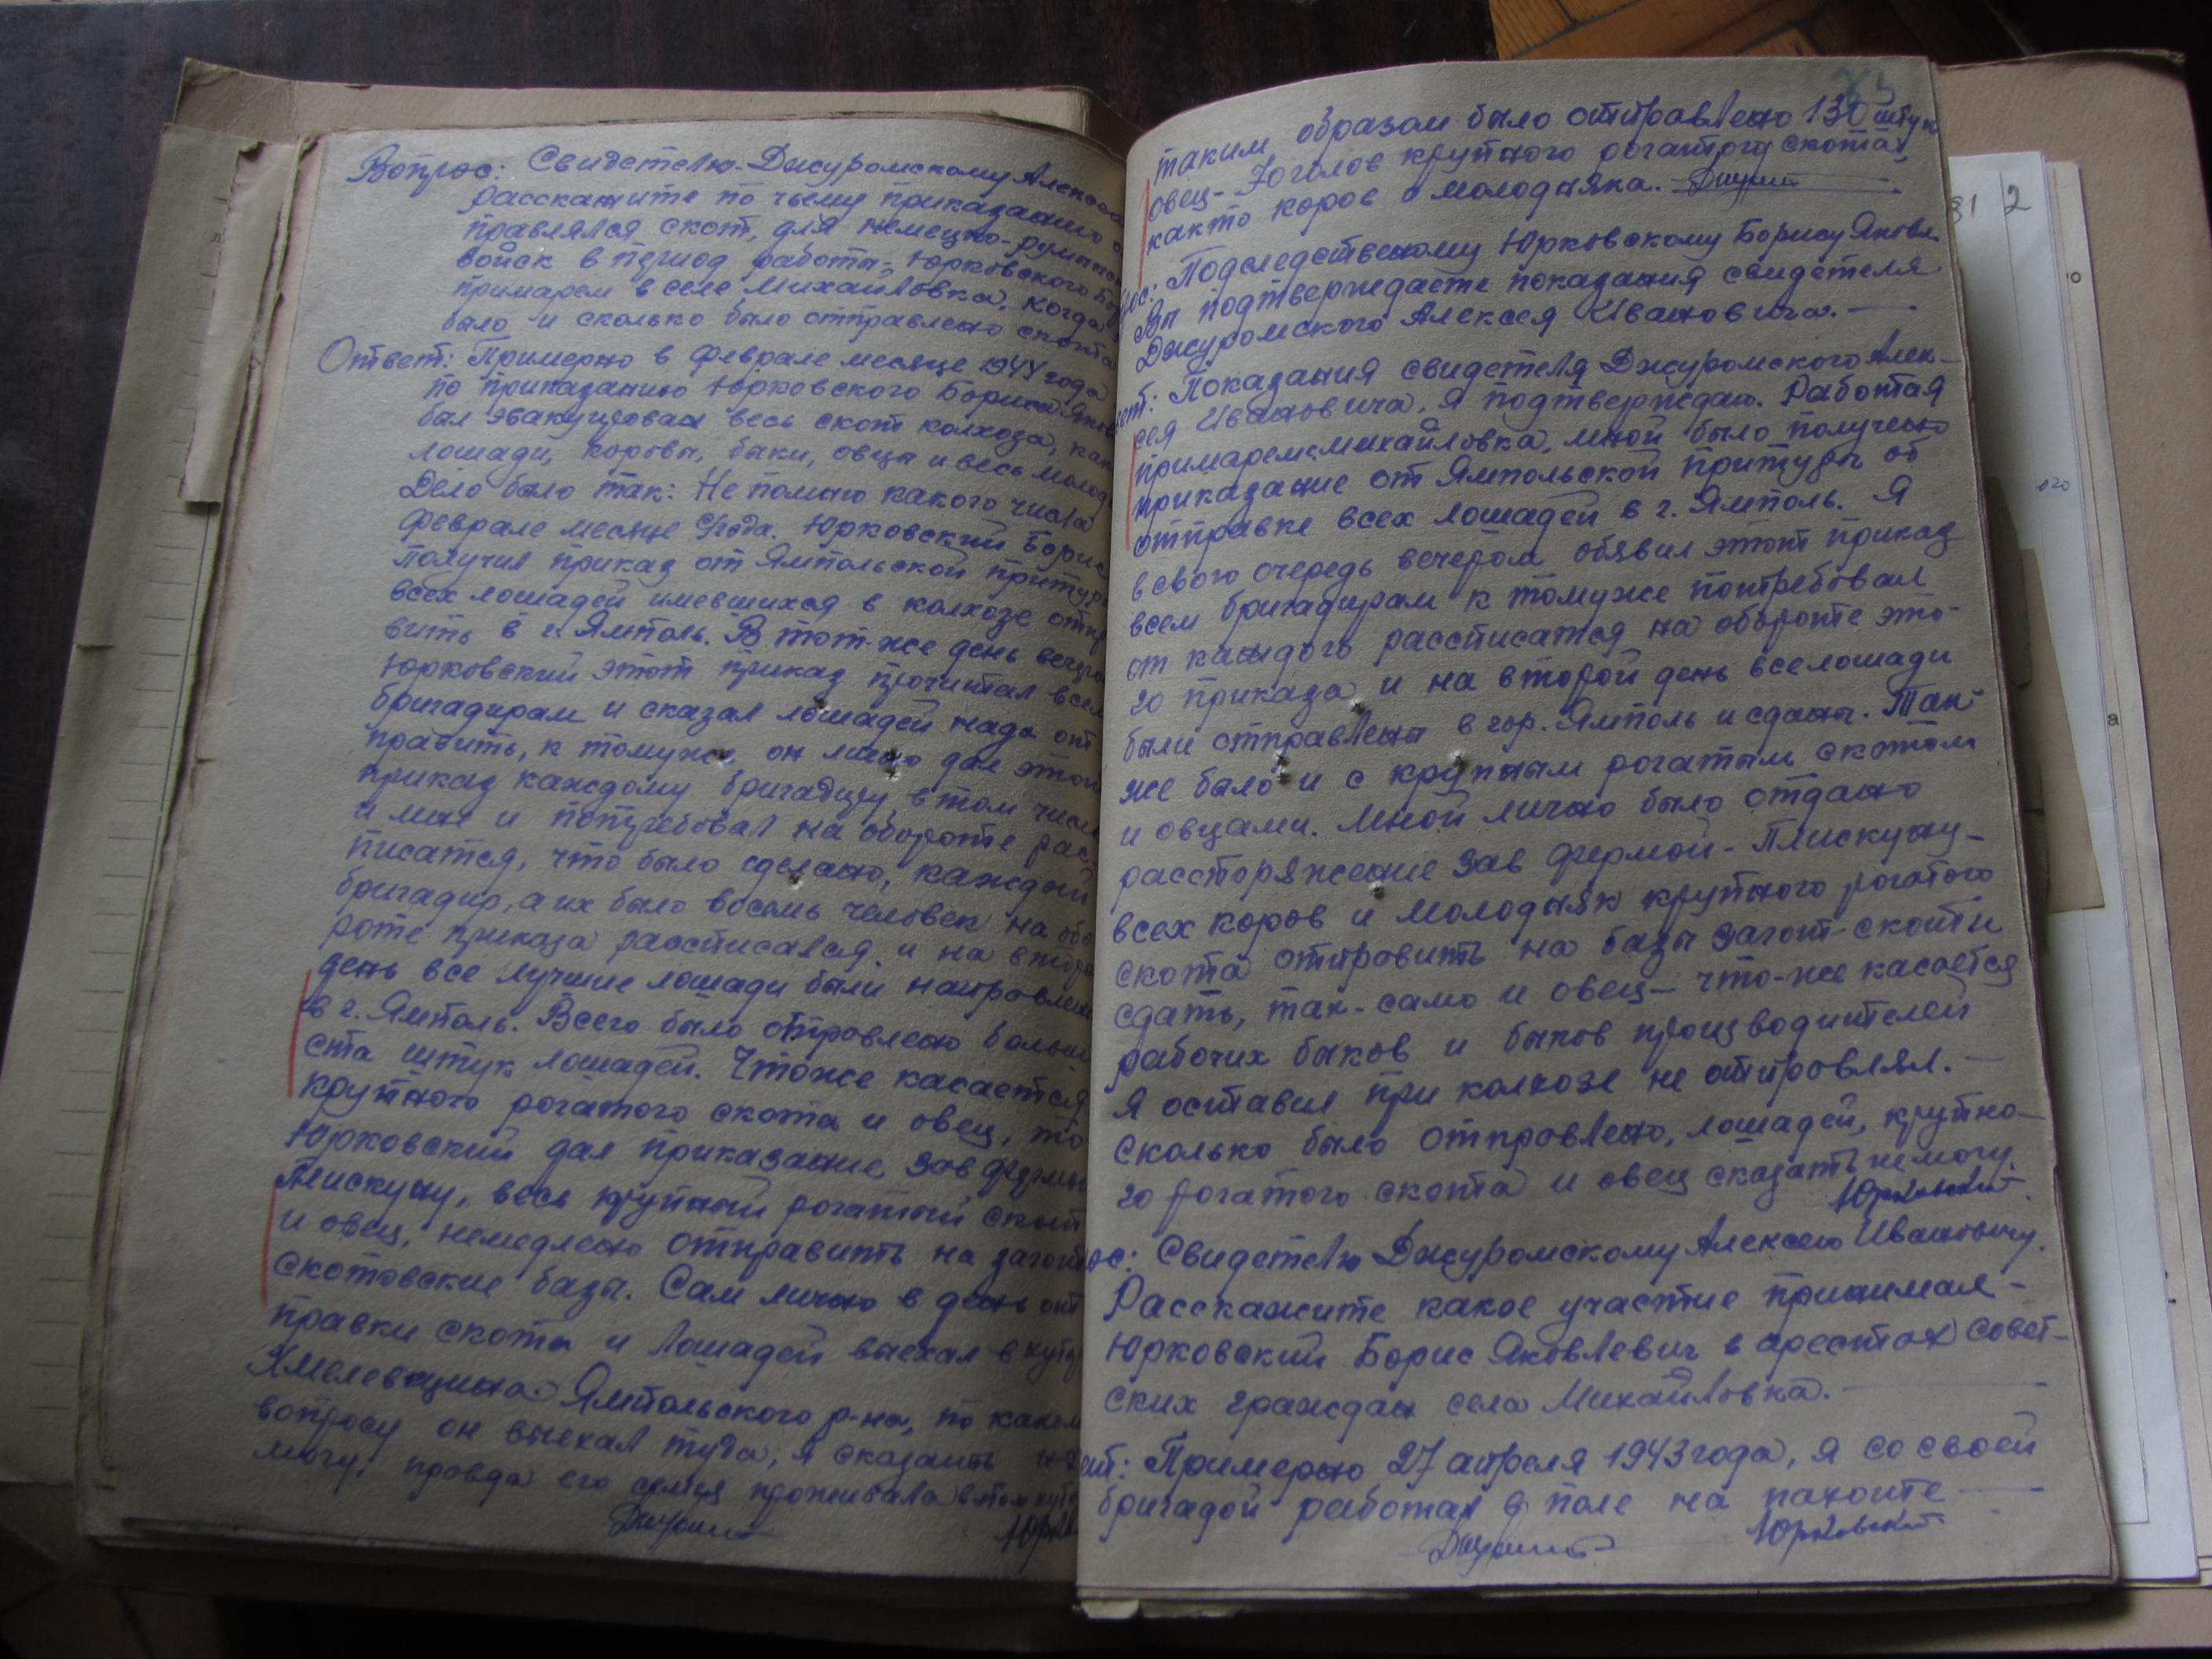 Вопрос: Свидетелю-Джуромскому Алексе
расскажите по чьему приказанию о
правлялся скот, для немецко-румынс
войск в период работы, Юрковского Бо
примарем в селе Михайловка, когда
было и сколько было отправлено скота
Ответ: Примерно в феврале месяце 1944 года
по приказанию Юрковского Бориса Яков
был эвакуирован весь скот колхоза, как
лошади, коровы, быки, овцы и весь молод
Дело было так: Не помню какого числа
феврале месяце года. Юрковский Борис
получил приказ от Ямпольской притуры
всех лошадей имевшихся в колхозе отпр
вить в г. Ямполь. В тот-же день вечеро
Юрковский этот приказ прочитал всем
бригадирам и сказал лошадей надо от
править, к томуже он лично дал этот
приказ каждому бригадиру в том числе
и мне и потребовал на обороте рас-
писатся, что было сделано, каждый
бригадир, а их было восемь человек на обо
роте приказа рассписался и на второ
день все лучшие лошади были направлены
в г. Ямполь. Всего было отправлено больше
ста штук лошадей. Чтоже касается
крупного рогатого скота и овец, то
Юрковский дал приказание зав фермы
Плискуну, весь крупный рогатый скот
и овец, немедлено отправить на загот
скотовские базы. Сам лично в день от
правки скота и лошадей выехал в хуто
Хмелевщина Ямпольского р-на, по каком
вопросу он выехал туда, я сказать не
могу, правда его семья проживала в этом хуто
Джуромс
Юрков
83
таким образом было отправлено 130 штук
овец- голов крупного рогатого скота,
както коров и молодняка. Джуром
рос: Подследственому Юрковскому Борису Яковл
Вы подтверждаете показания свидетеля
Джуромского Алексея Ивановича. —
вет: Показания свидетеля Джуромского Алек-
сея Ивановича, я подтверждаю. Работая
примарем с Михайловка, мной было получено
приказание от Ямпольской притуры об
отправке всех лошадей в г. Ямполь. Я
в свою очередь вечером обявил этот приказ
всем бригадирам к томуже потребовал
от каждого рассписатся на обороте это-
го приказа и на второй день все лошади
были отправлены в гор. Ямполь и сданы. Так
же было и с крупным рогатым скотом
и овцами. Мной лично было отдано
рассторяжение зав фермой - Плискуну-
всех коров и молодняк крупного рогатого
скота отправить на базы загот-скот и
сдать, так-само и овец- что-же касается
рабочих быков и быков производителей
я оставил при колхозе не отправлял. —
сколько было отправлено, лошадей, крупно-
го рогатого скота и овец сказать не могу.
Юрковский
ос: Свидетелю Джуромскому Алексею Ивановичу.
Расскажите какое участие принимал-
Юрковский Борис Яковлевич в арестах совет-
ских граждан села Михайловка. —
ет: Примерно 27 апреля 1943 года, я со своей
бригадой работал в поле на пахоте —
Джуромс
Юрковский
81 2